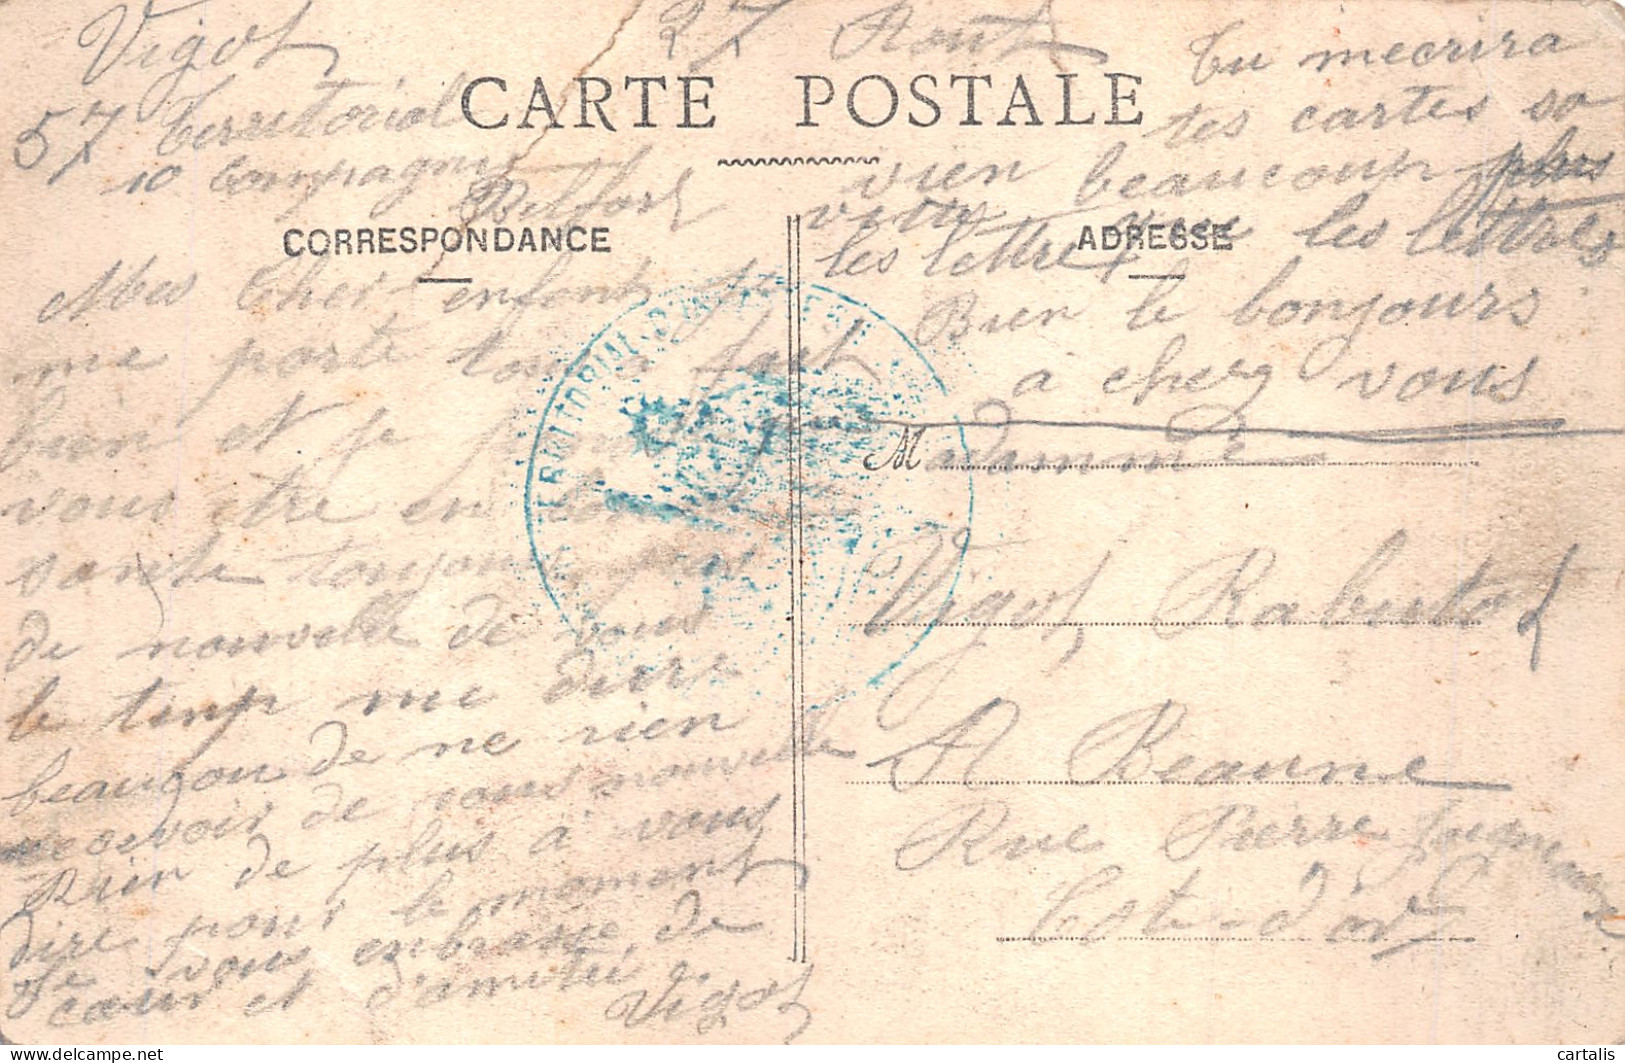 Vigot 27 Aout
57 Territorial
10 Compagni
Belfort
CARTE POSTALE
CORRESPONDANCE
Mes Cher enfants je
me porte tout a fait
bien et je pour
vous etre en bonne
sante toujours pas
de nouvelle de vous
le temp me dure
beaucou de ne rien
recevoir de vous nouvelle
Rien de plus à vous
dire pour le moment
Je vous enbrasse de
cœur et d'amitié
Vigot
Tu mecrira
tes cartes so
vien beaucoup plus
vites que les lettres
les lettre
ADRESSE
Bien le bonjours
a cherz vous
Madamme
Vigot Rabutot
A Beaune
Rue Pierre
Cote-d'or
TERRITORIAL D'INFANTERIE
cartalis